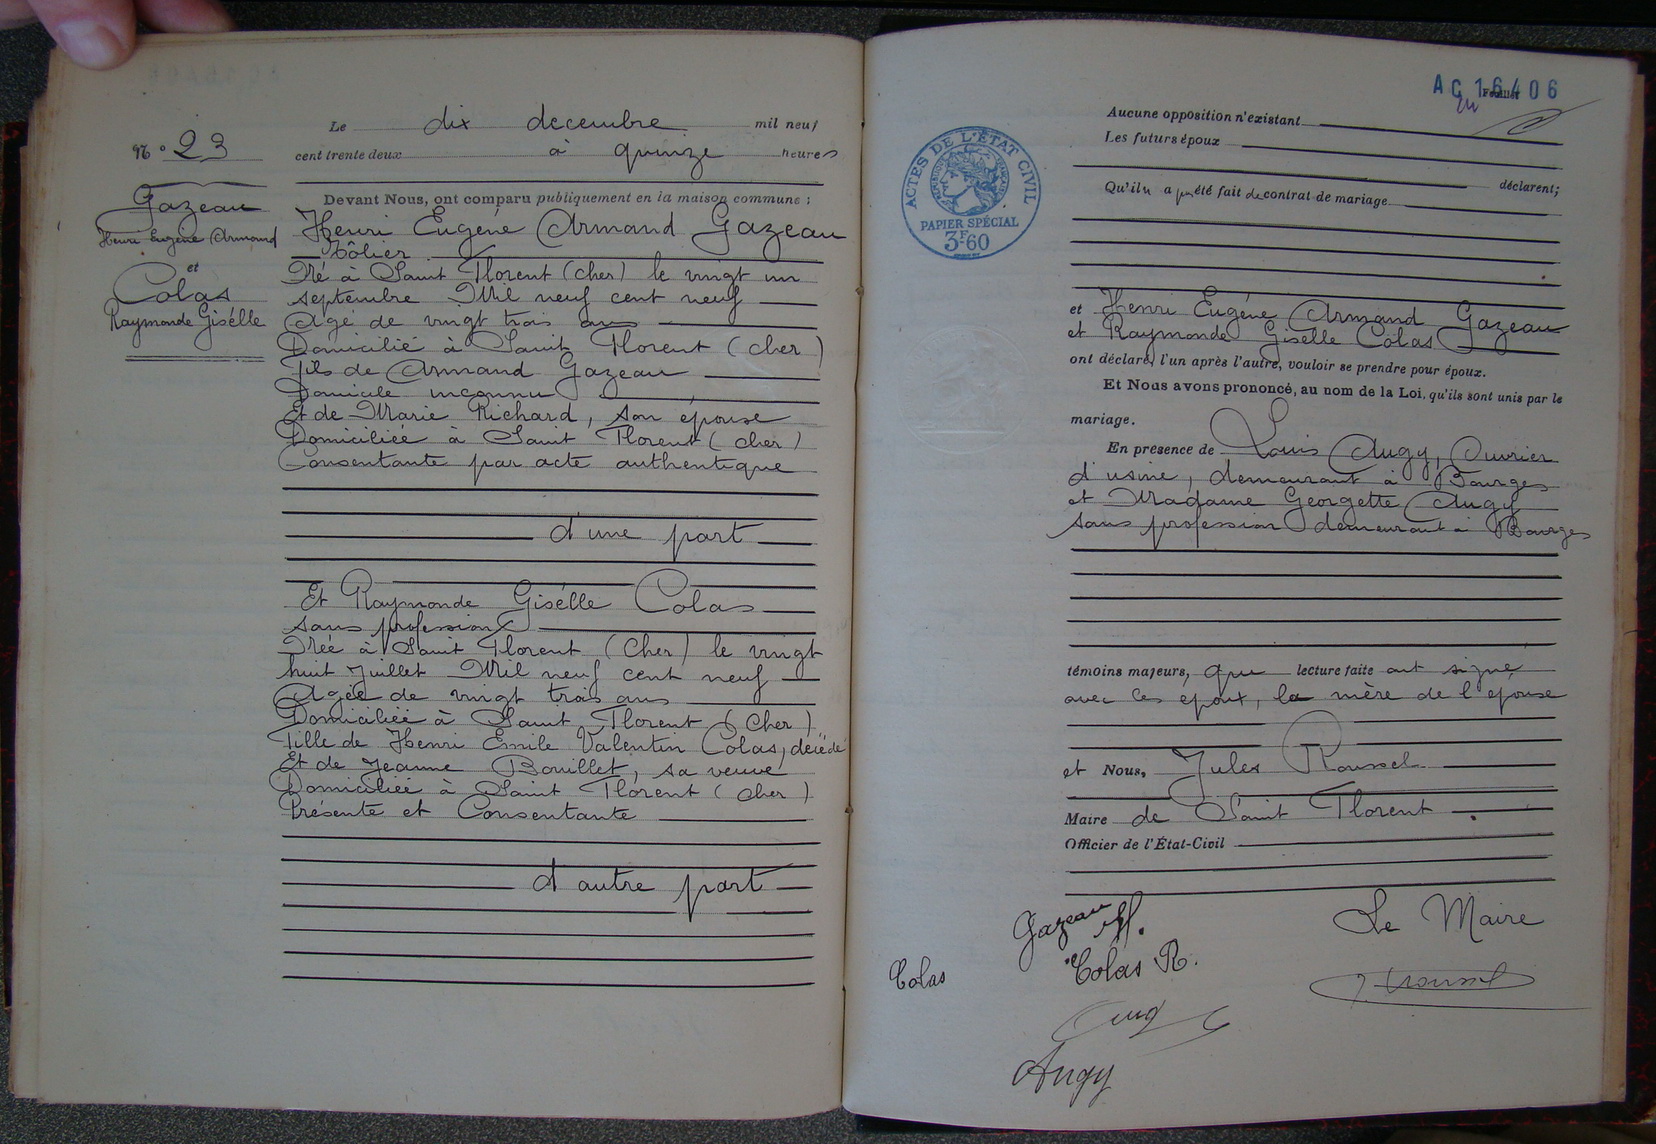 Le dix decembre mil neuf
N° 23
cent trente deux à quinze heures
Gazeau
Henri Eugène Armand
et
Colas
Raymonde Gisélle
Devant Nous, ont comparu publiquement en la maison commune :
Henri Eugéne Armand Gazeau
Tôlier
Né à Saint Florent (Cher) le vingt un
septembre Mil neuf cent neuf
Agé de vingt trois ans
Domicilié à Saint Florent (Cher)
fils de Armand Gazeau
Domicile inconnu
Et de Marie Richard, son épouse
Domiciliée à Saint Florent (Cher)
Consentante par acte authentique
d'une part
Et Raymonde Gisélle Colas
sans profession
Née à Saint Florent (Cher) le vingt
huit Juillet Mil neuf cent neuf
Agée de vingt trois ans
Domiciliée à Saint Florent (Cher)
Fille de Henri Emile Valentin Colas, décédé
Et de Jeanne Bouillet, sa veuve
Domiciliée à Saint Florent (Cher)
Présente et Consentante
d'autre part
AC 16406
Feuillet
ACTES DE L'ÉTAT CIVIL
PAPIER SPÉCIAL
3F60
Aucune opposition n'existant
Les futurs époux
déclarent;
Qu'il n'a pas été fait de contrat de mariage
et Henri Eugéne Armand Gazeau
et Raymonde Giselle Colas
ont déclaré, l'un après l'autre, vouloir se prendre pour époux.
Et Nous avons prononcé, au nom de la Loi, qu'ils sont unis par le
mariage.
En présence de Louis Augy, Ouvrier
d'usine, demeurant à Bourges
et Madame Georgette Augy
sans profession demeurant à Bourges
témoins majeurs, que lecture faite ont signé
avec les époux, la mère de l'épouse
et Nous, Jules Roussel
Maire de Saint Florent
Officier de l'État-Civil
Gazeau H.
Le Maire
Colas
Colas R.
J. Roussel
Augy
Augy